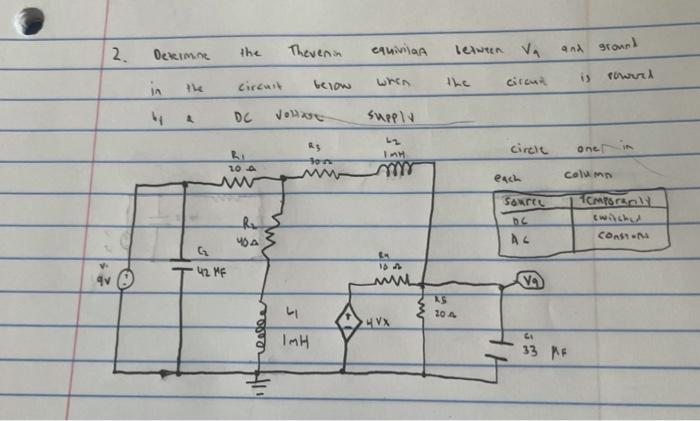 2. Determine the Thevenin equivilan between Va and ground
in the circuit below when the circuit is powered
by a DC Voltage supply
circle one in
each column
source temporarily
DC switched
AC constant
R1
20 Ω
R3
30 Ω
L2
1mH
R2
40Ω
C2
42 MF
V1
9V
L1
1mH
R4
10 Ω
4Vx
R5
20Ω
Va
C1
33 MF